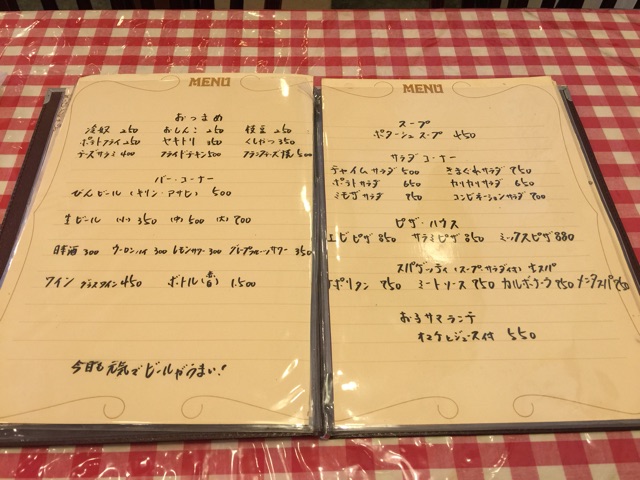 MENU
おつまみ
冷奴 250 おしんこ 250 枝豆 250
ポテトフライ 250 ヤキトリ 350 くしやつ 350
チーズサラミ 400 フライドチキン 500 500
バー・コーナー
びんビール (キリン・アサヒ) 500
生ビール (小) 350 (中) 500 (大) 700
日本酒 300 ウーロンハイ 300 レモンサワー 300 グレープフルーツサワー 350
ワイン グラスワイン 450 ボトル(赤白) 1.500
今日も元気でビールがうまい!
MENU
スープ
ポタージュスープ 450
サラダコーナー
チャイムサラダ 500 きまぐれサラダ 750
ポテトサラダ 650 カリカリサラダ 650
ミモザサラダ 750 コンビネーションサラダ 700
ピザ・ハウス
エビピザ 850 サラミピザ 850 ミックスピザ 880
スパゲッティ (スープ・サラダ付)
ナポリタン 750 ミートソース 750 カルボナーラ 750 メンタイスパ 750
お子サマランチ
オマケとジュース付 550